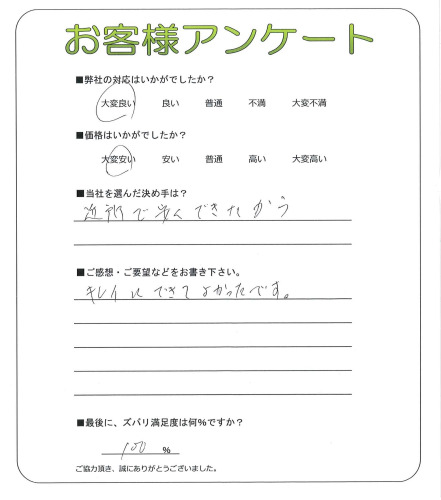 お客様アンケート
■弊社の対応はいかがでしたか?
大変良い 良い 普通 不満 大変不満
■価格はいかがでしたか?
大変安い 安い 普通 高い 大変高い
■当社を選んだ決め手は?
近所で安くできたから
■ご感想・ご要望などをお書き下さい。
キレイにできてよかったです。
■最後に、ズバリ満足度は何%ですか?
100 %
ご協力頂き、誠にありがとうございました。